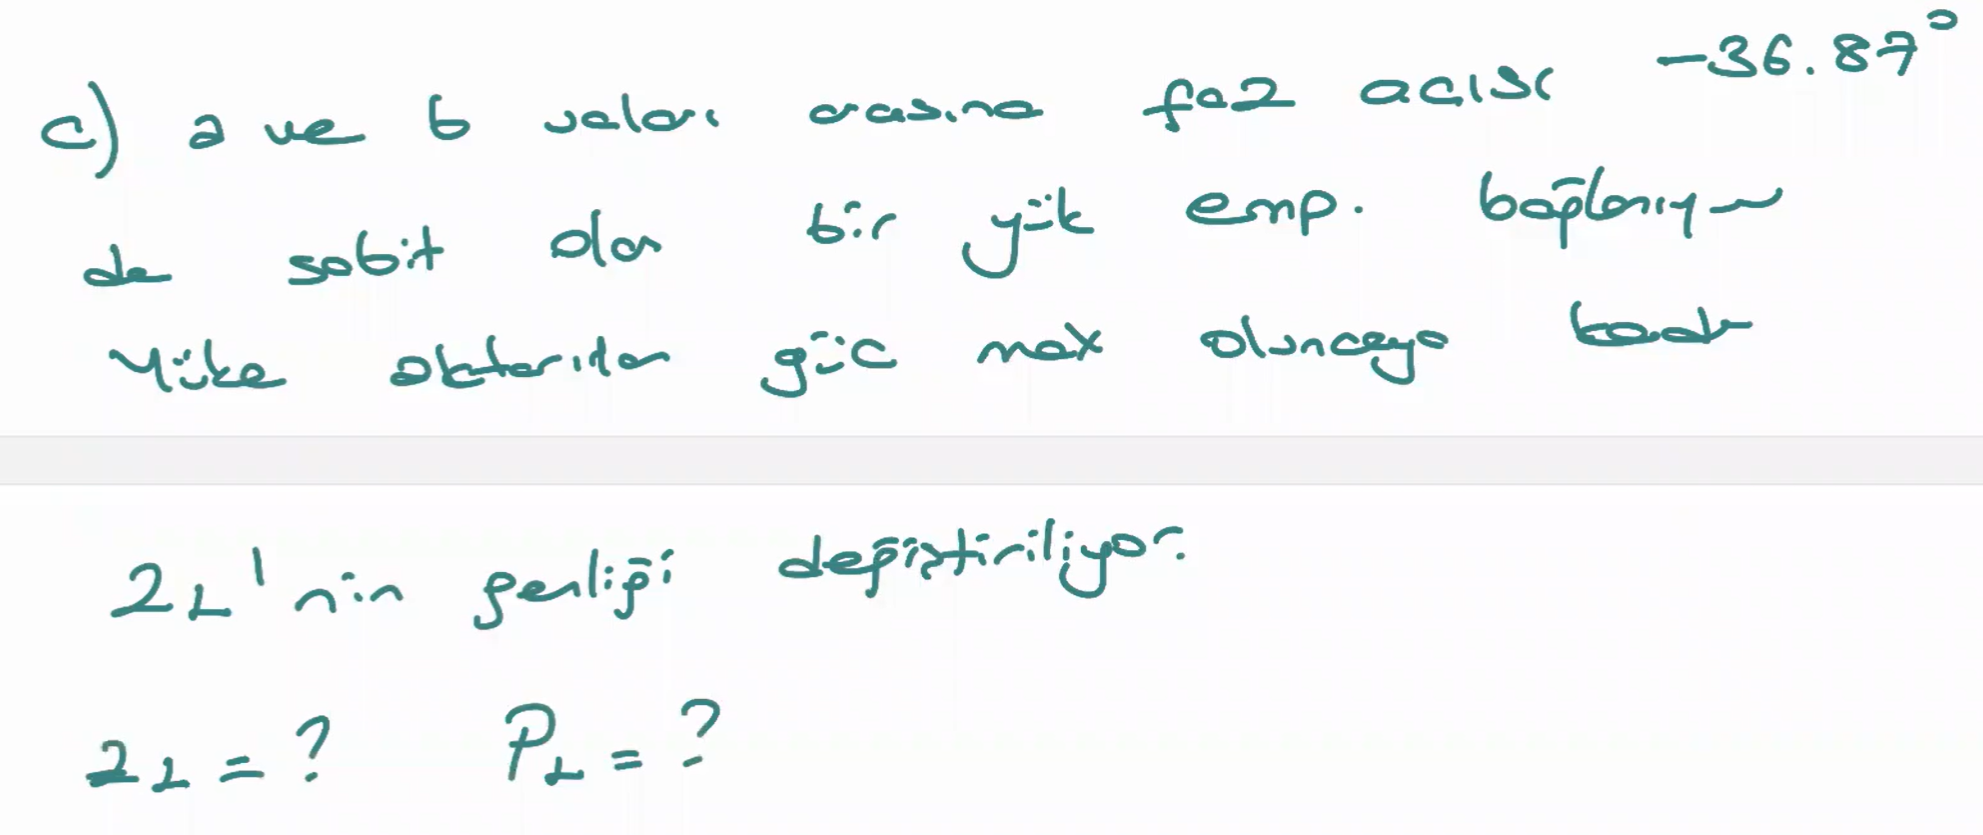 c) a ve b uçları arasına faz açısı -36.87°
de sabit olan bir yük emp. bağlanıyor
Yüke aktarılan güç max oluncaya kadar
ZL'nin genliği değiştiriliyor.
ZL = ? PL = ?